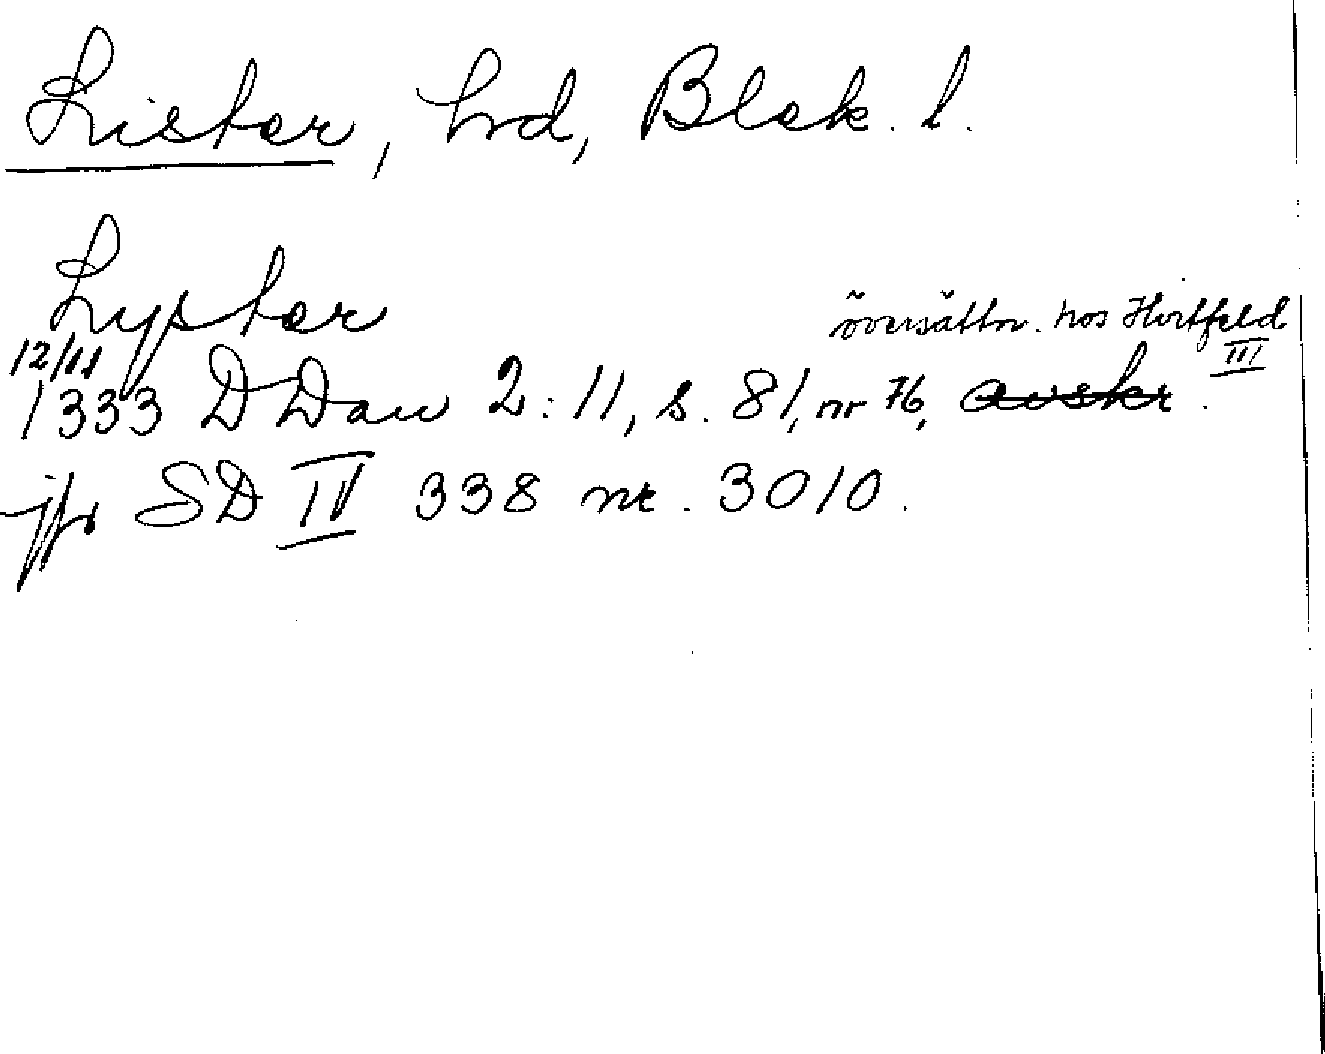 Lister, hrd, Blek. l.
Lyster
översättn. hos Hvitfeld III
12/11
1333 DDan 2:11, s. 81, nr 76, avskr.
jfr SD IV 338 nr. 3010.